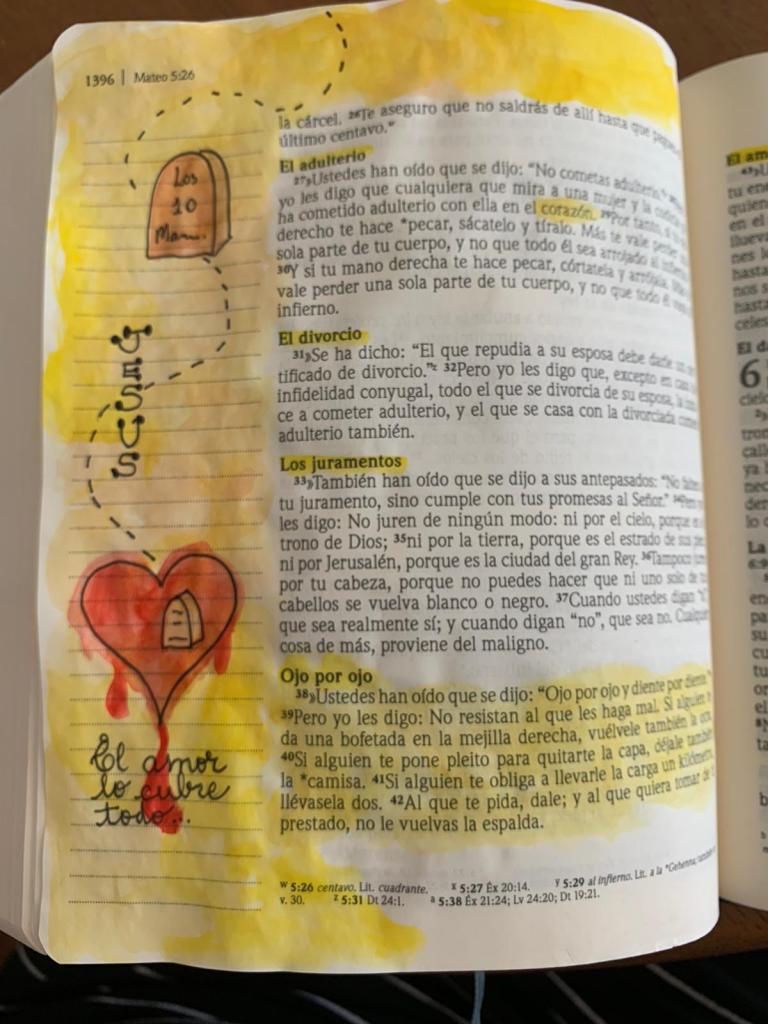 1396 | Mateo 5:26
Los
10
Man..
JESUS
El amor
lo cubre
todo...
la cárcel. ²⁶Te aseguro que no saldrás de allí hasta que
último centavo.ʷ
El adulterio
²⁷»Ustedes han oído que se dijo: “No cometas adulterio.”
yo les digo que cualquiera que mira a una mujer y la
ha cometido adulterio con ella en el corazón. ²⁹Por tanto, si
derecho te hace *pecar, sácatelo y tíralo. Más te vale perder
sola parte de tu cuerpo, y no que todo él sea arrojado al
³⁰Y si tu mano derecha te hace pecar, córtatela y arrójala.
vale perder una sola parte de tu cuerpo, y no que todo él
infierno.
El divorcio
³¹»Se ha dicho: “El que repudia a su esposa debe darle un
tificado de divorcio.”ᶻ ³²Pero yo les digo que, excepto en caso
infidelidad conyugal, todo el que se divorcia de su esposa, la
ce a cometer adulterio, y el que se casa con la divorciada comete
adulterio también.
Los juramentos
³³»También han oído que se dijo a sus antepasados: “No
tu juramento, sino cumple con tus promesas al Señor.” ³⁴Pero
les digo: No juren de ningún modo: ni por el cielo, porque es
trono de Dios; ³⁵ni por la tierra, porque es el estrado de sus
ni por Jerusalén, porque es la ciudad del gran Rey. ³⁶Tampoco
por tu cabeza, porque no puedes hacer que ni uno solo de
cabellos se vuelva blanco o negro. ³⁷Cuando ustedes digan “sí”,
que sea realmente sí; y cuando digan “no”, que sea no. Cualquier
cosa de más, proviene del maligno.
Ojo por ojo
³⁸»Ustedes han oído que se dijo: “Ojo por ojo y diente por diente.”
³⁹Pero yo les digo: No resistan al que les haga mal. Si alguien te
da una bofetada en la mejilla derecha, vuélvele también la otra.
⁴⁰Si alguien te pone pleito para quitarte la capa, déjale también
la *camisa. ⁴¹Si alguien te obliga a llevarle la carga un kilómetro,
llévasela dos. ⁴²Al que te pida, dale; y al que quiera tomar de
prestado, no le vuelvas la espalda.
ʷ 5:26 centavo. Lit. cuadrante. ˣ 5:27 Éx 20:14. ʸ 5:29 al infierno. Lit. a la *Gehenna;
v. 30. ᶻ 5:31 Dt 24:1. ᵃ 5:38 Éx 21:24; Lv 24:20; Dt 19:21.
El am
tu en
quien
en el
lluev
nes l
hasta
nos s
hasta
celes
El d
6